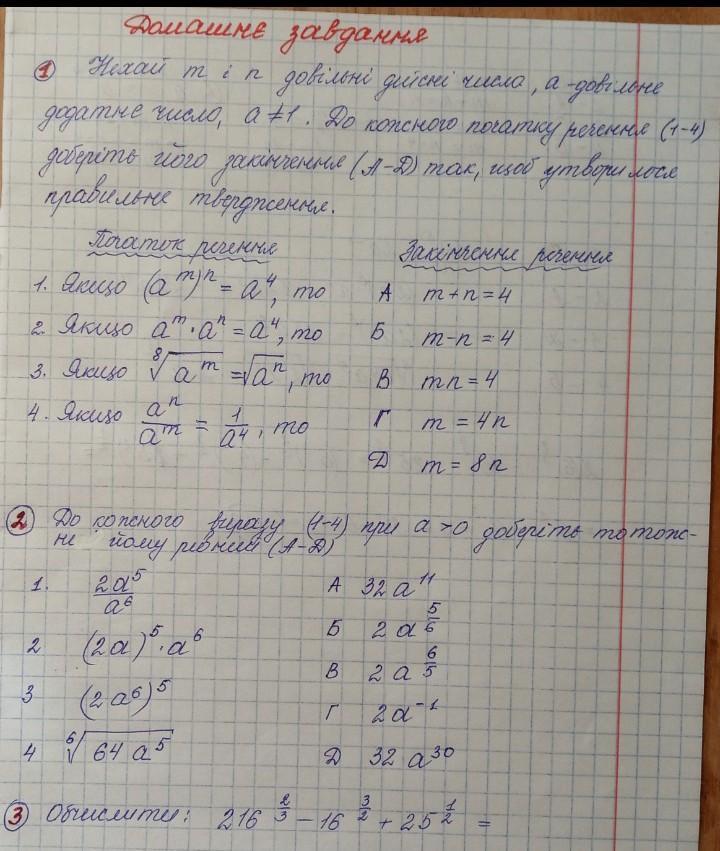 Домашнє завдання
① Нехай m і n довільні дійсні числа, а - довільне
додатне число, a ≠ 1. До кожного початку речення (1-4)
доберіть його закінчення (А-Д) так, щоб утворилося
правильне твердження.
Початок речення Закінчення речення
1. Якщо (a^m)^n = a^4, то А m + n = 4
2. Якщо a^m · a^n = a^4, то Б m - n = 4
3. Якщо ⁸√(a^m) = √(a^n), то В mn = 4
4. Якщо a^n/a^m = 1/a^4, то Г m = 4n
Д m = 8n
② До кожного виразу (1-4) при a > 0 доберіть тотож-
не йому рівний (А-Д)
1. 2a^5/a^6 А 32a^11
2 (2a)^5 · a^6 Б 2a^(5/6)
3 (2a^6)^5 В 2a^(6/5)
Г 2a^-1
4 ⁶√(64a^5) Д 32a^30
③ Обчислити: 216^(2/3) - 16^(3/2) + 25^(1/2) =